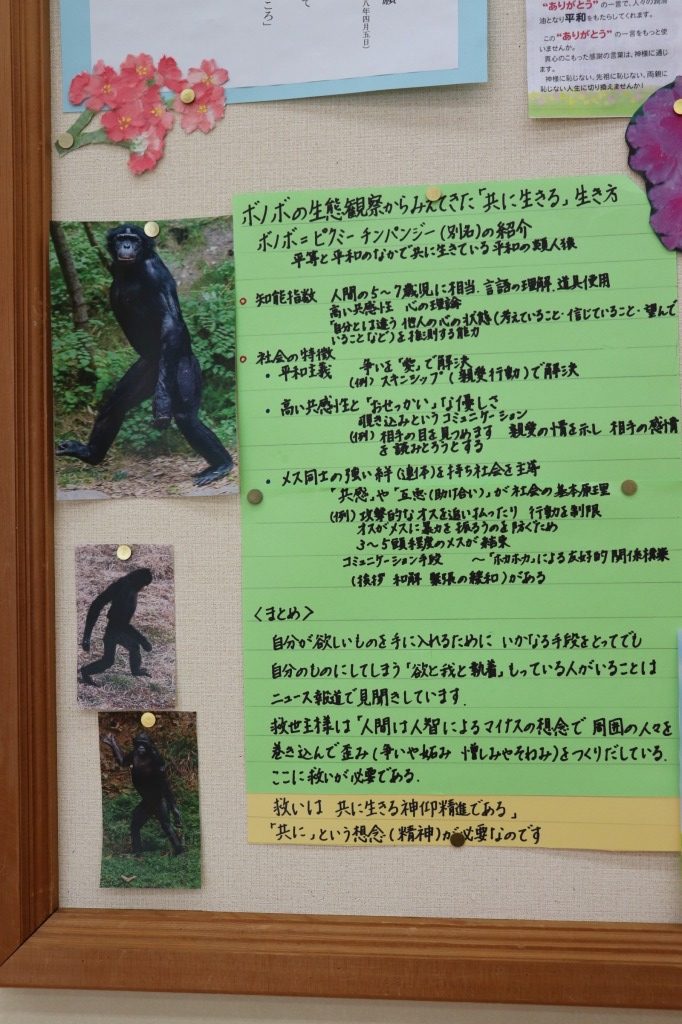 願
て
八年四月五日)
ころ」
"ありがとう"の一言で、人々の潤滑
油となり平和をもたらしてくれます。
この"ありがとう"の一言をもっと使
いませんか。
真心のこもった感謝の言葉は、神様に通じ
ます。
神様に恥じない、先祖に恥じない、両親に
恥じない人生に切り換えませんか!
ボノボの生態観察からみえてきた「共に生きる」生き方
ボノボ=ピグミーチンパンジー(別名)の紹介
平等と平和のなかで共に生きている平和の類人猿
知能指数 人間の5～7歳児に相当.言語の理解.道具使用
高い共感性 心の理論
「自分とは違う他人の心の状態(考えていること・信じていること・望んで
いることなど)を推測する能力
社会の特徴
・平和主義 争いを「愛」で解決
(例)スキンシップ(親愛行動)で解決
・高い共感性と「おせっかい」な優しさ
覗き込みというコミュニケーション
(例)相手の目を見つめます 親愛の情を示し 相手の感情
を読みとろうとする
・メス同士の強い絆(連体)を持ち社会を主導
「共感」や「互恵(助け合い)」が社会の基本原理
(例)攻撃的なオスを追い払ったり 行動を制限
オスがメスに暴力を振るうのを防ぐため
3～5頭程度のメスが結束
コミュニケーション手段 ～「ホカホカ」による友好的関係構築
(挨拶 和解 緊張の緩和)がある
<まとめ>
自分が欲しいものを手に入れるために いかなる手段をとってでも
自分のものにしてしまう「欲と我と執着」もっている人がいることは
ニュース報道で見聞きしています.
救世主様は「人間は人智によるマイナスの想念で 周囲の人々を
巻き込んで歪み(争いや妬み 憎しみやそねみ)をつくりだしている.
ここに救いが必要である.
救いは 共に生きる神仰精進である」
「共に」という想念(精神)が必要なのです